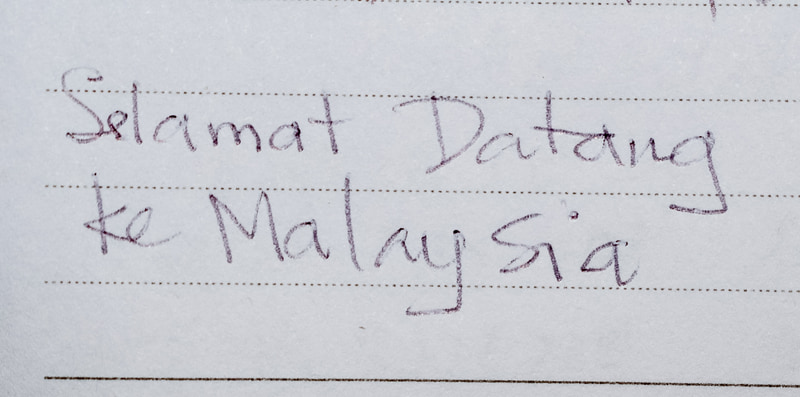 Selamat Datang
ke Malaysia